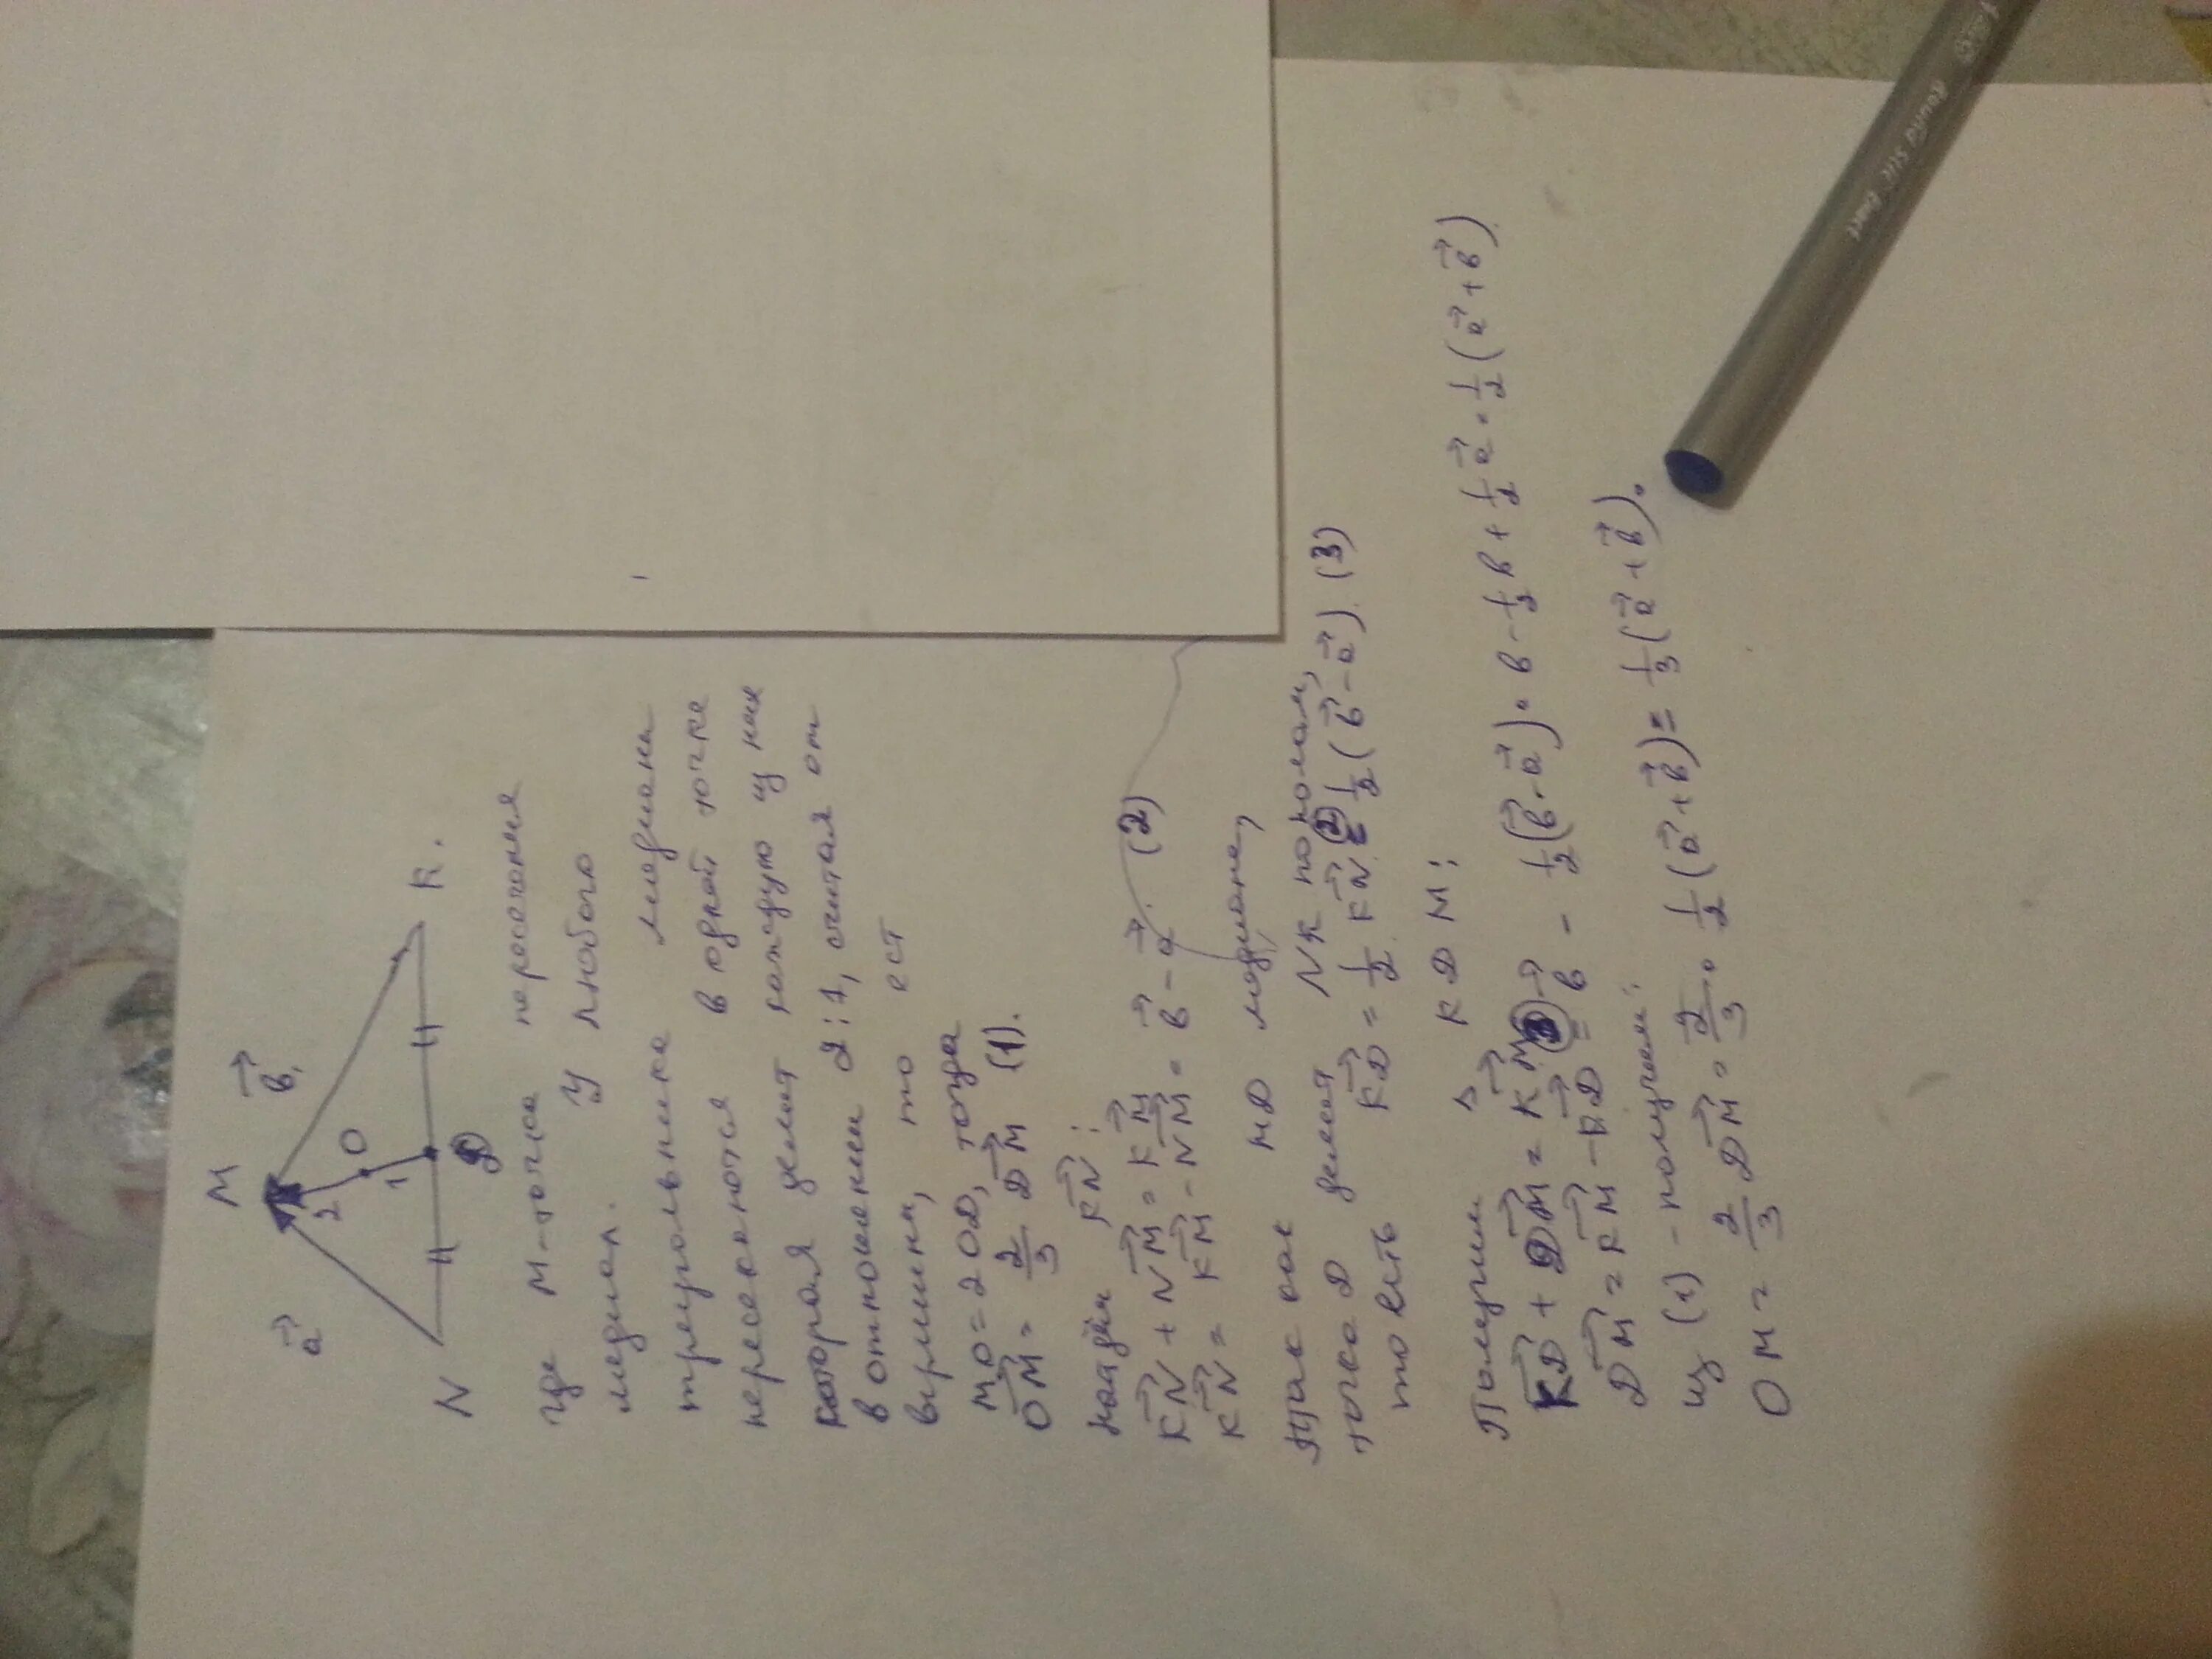 M
a⃗
b⃗.
2
O
1
N
D
K.
где M-точка пересечения
медиан. У любого
треугольника медианы
пересекаются в одной точке
которая делит каждую из них
в отношении 2:1, считая от
вершины, то ест
MO=2OD, тогда
O⃗M⃗ = 2/3 D⃗M⃗ (1).
Найдём K⃗N⃗:
K⃗N⃗ + N⃗M⃗ = K⃗M⃗
K⃗N⃗ = K⃗M⃗ - N⃗M⃗ = b⃗ - a⃗. (2)
Так как MD медиана,
точка D делит NK пополам,
то есть K⃗D⃗ = 1/2 K⃗N⃗ (2)= 1/2 (b⃗ - a⃗). (3)
Получим △ KDM:
K⃗D⃗ + D⃗M⃗ = K⃗M⃗
D⃗M⃗ = K⃗M⃗ - K⃗D⃗ (3)= b⃗ - 1/2 (b⃗ - a⃗) = b - 1/2 b + 1/2 a⃗ = 1/2 (a⃗ + b⃗)
из (1) - получаем:
OM = 2/3 D⃗M⃗ = 2/3 · 1/2 (a⃗ + b⃗) = 1/3 (a⃗ + b⃗).
Round Stic Exact